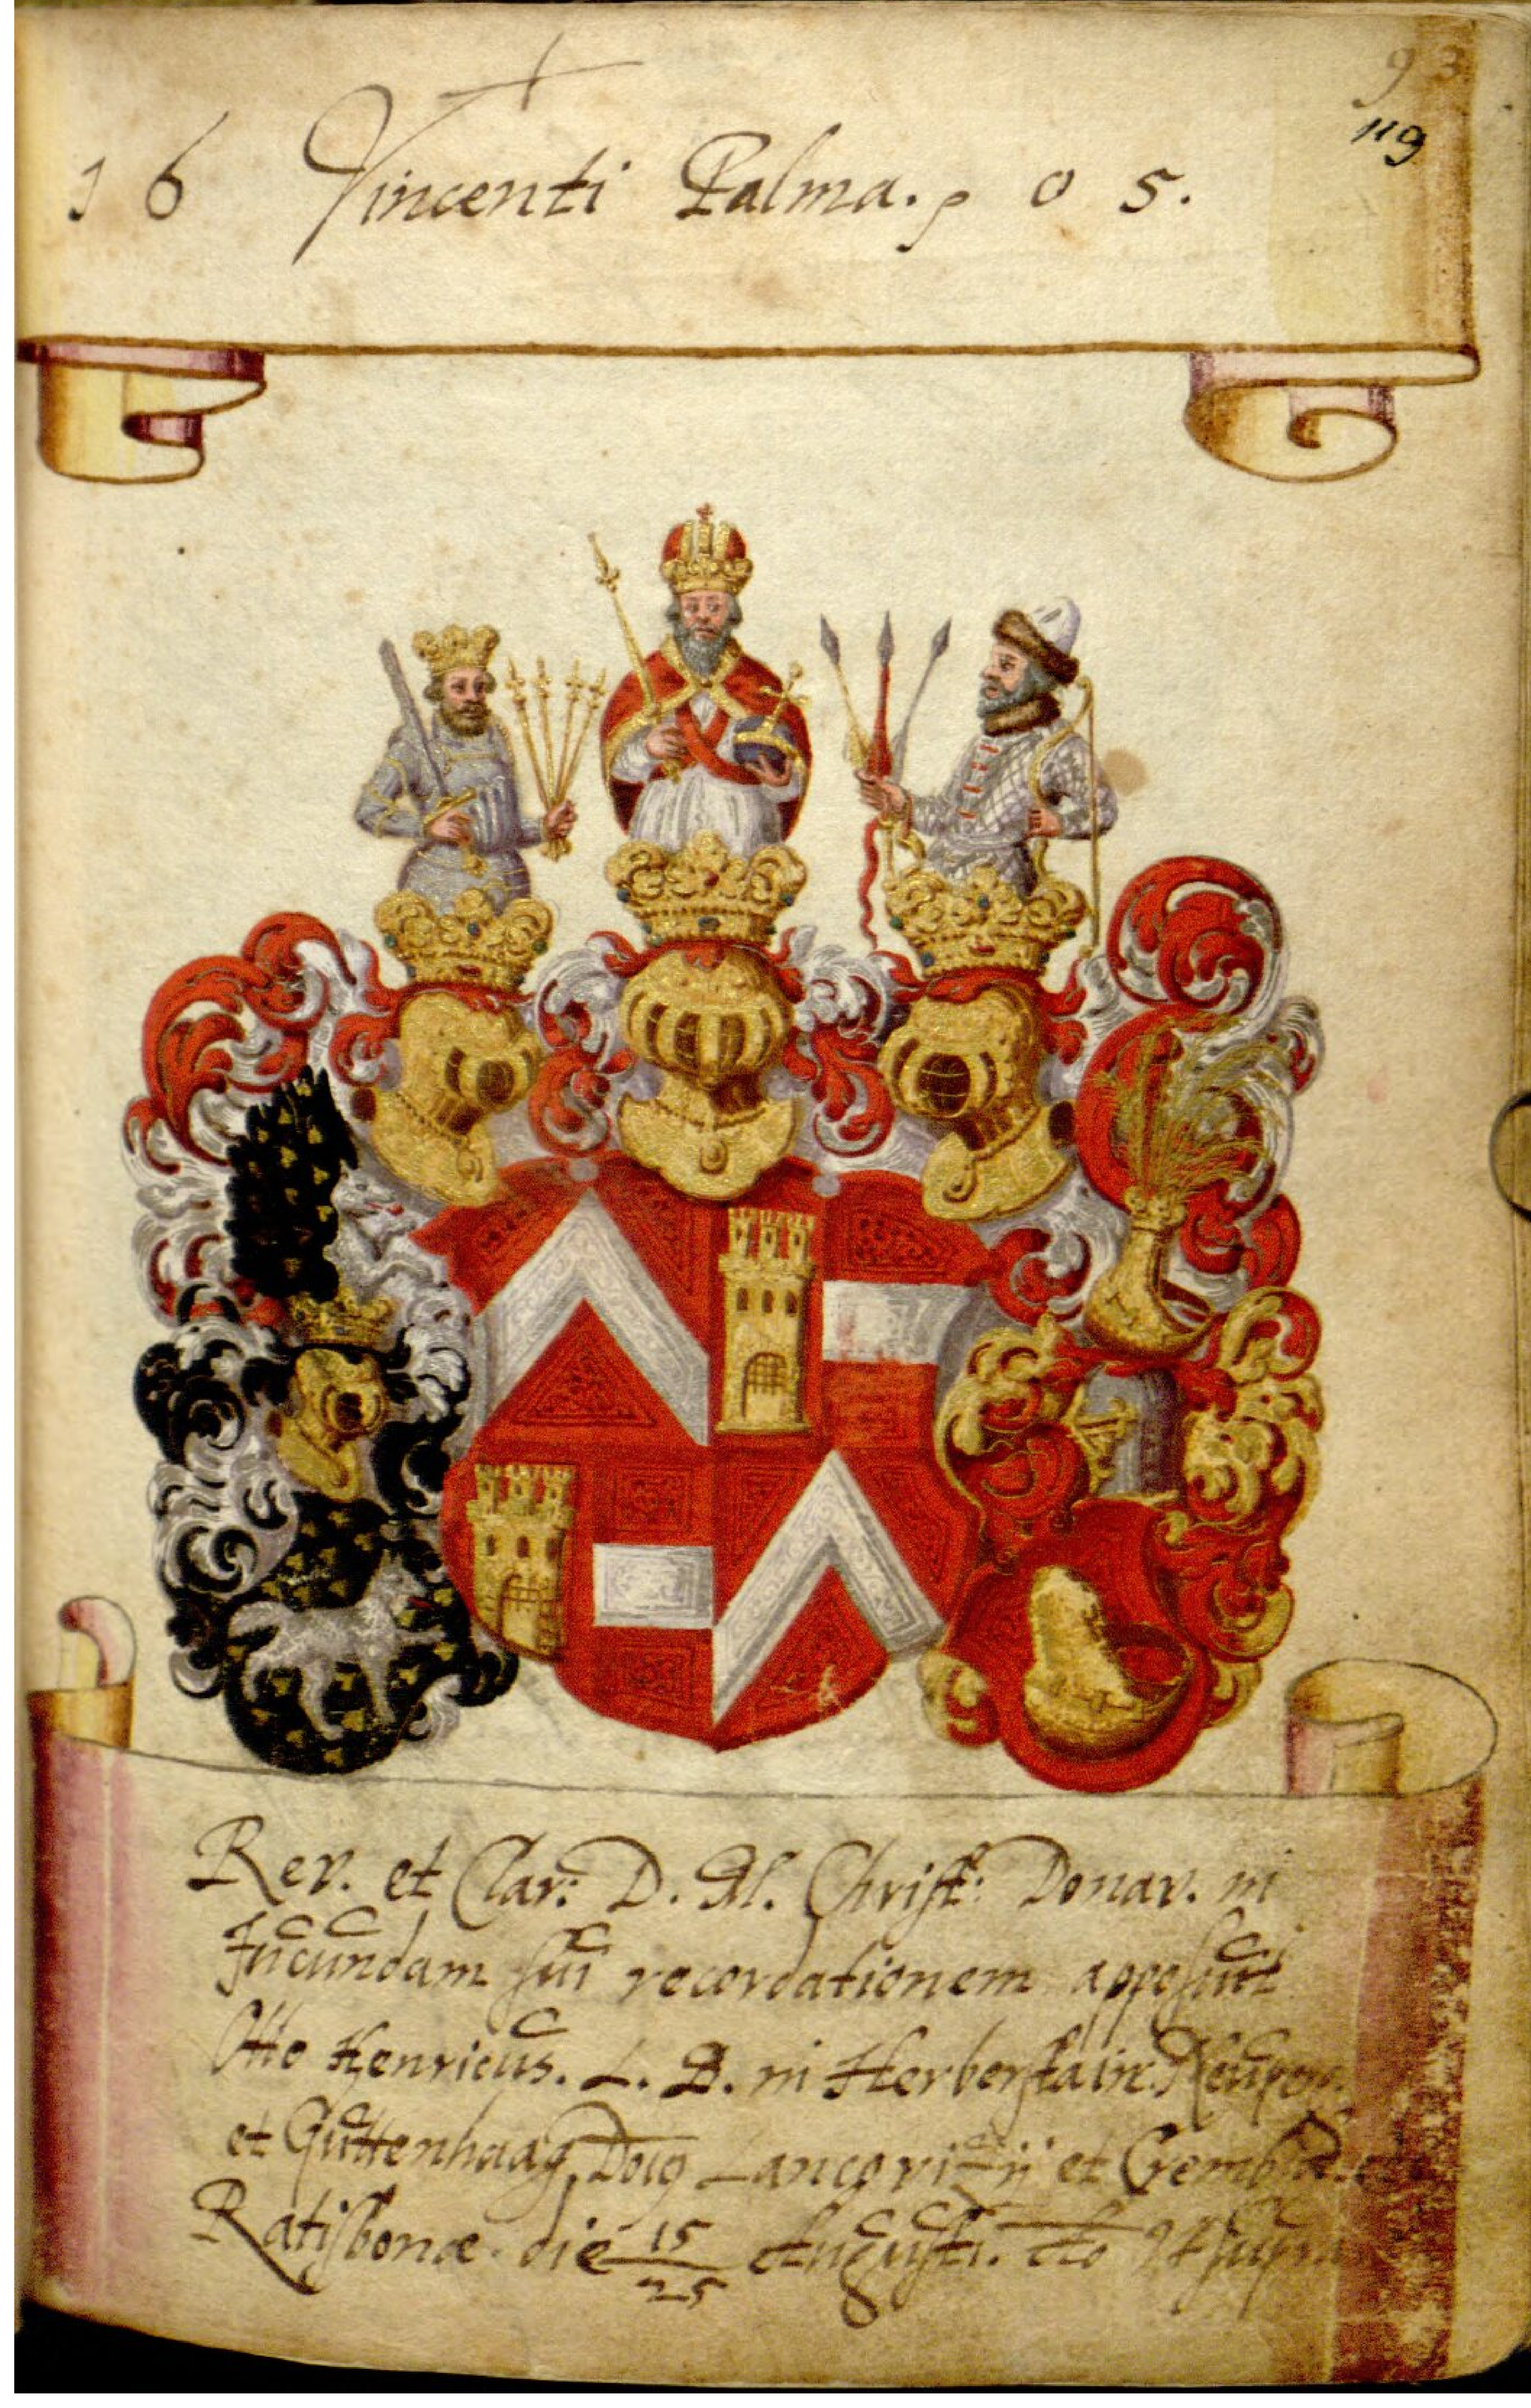 93
119
1 6 Vincenti Palma. 0 5.
Rev. et Clar: D. M. Christ: Donav. in
Jucundam sui recordationem apposuit
Otto Henricus. L. B. in Herberstain. Neuperg.
et Guttenhaag, Lancovitij et
Ratisbonæ. die 15/25 Augusti. Ao